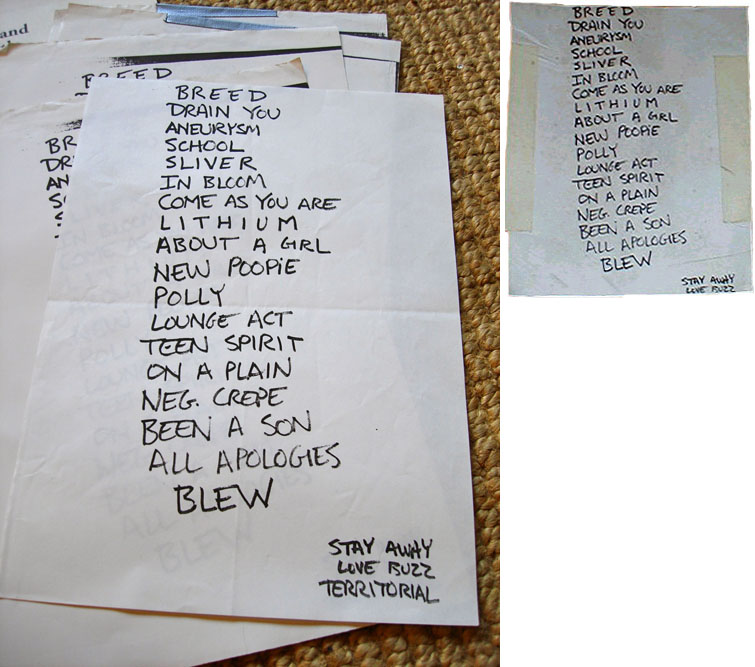 and
BREED
BR
DR
AN
SC
BREED
DRAIN YOU
ANEURYSM
SCHOOL
SLIVER
IN BLOOM
COME AS YOU ARE
LITHIUM
ABOUT A GIRL
NEW POOPIE
POLLY
LOUNGE ACT
TEEN SPIRIT
ON A PLAIN
NEG. CREPE
BEEN A SON
ALL APOLOGIES
BLEW
STAY AWAY
LOVE BUZZ
TERRITORIAL
BREED
DRAIN YOU
ANEURYSM
SCHOOL
SLIVER
IN BLOOM
COME AS YOU ARE
LITHIUM
ABOUT A GIRL
NEW POOPIE
POLLY
LOUNGE ACT
TEEN SPIRIT
ON A PLAIN
NEG. CREPE
BEEN A SON
ALL APOLOGIES
BLEW
STAY AWAY
LOVE BUZZ